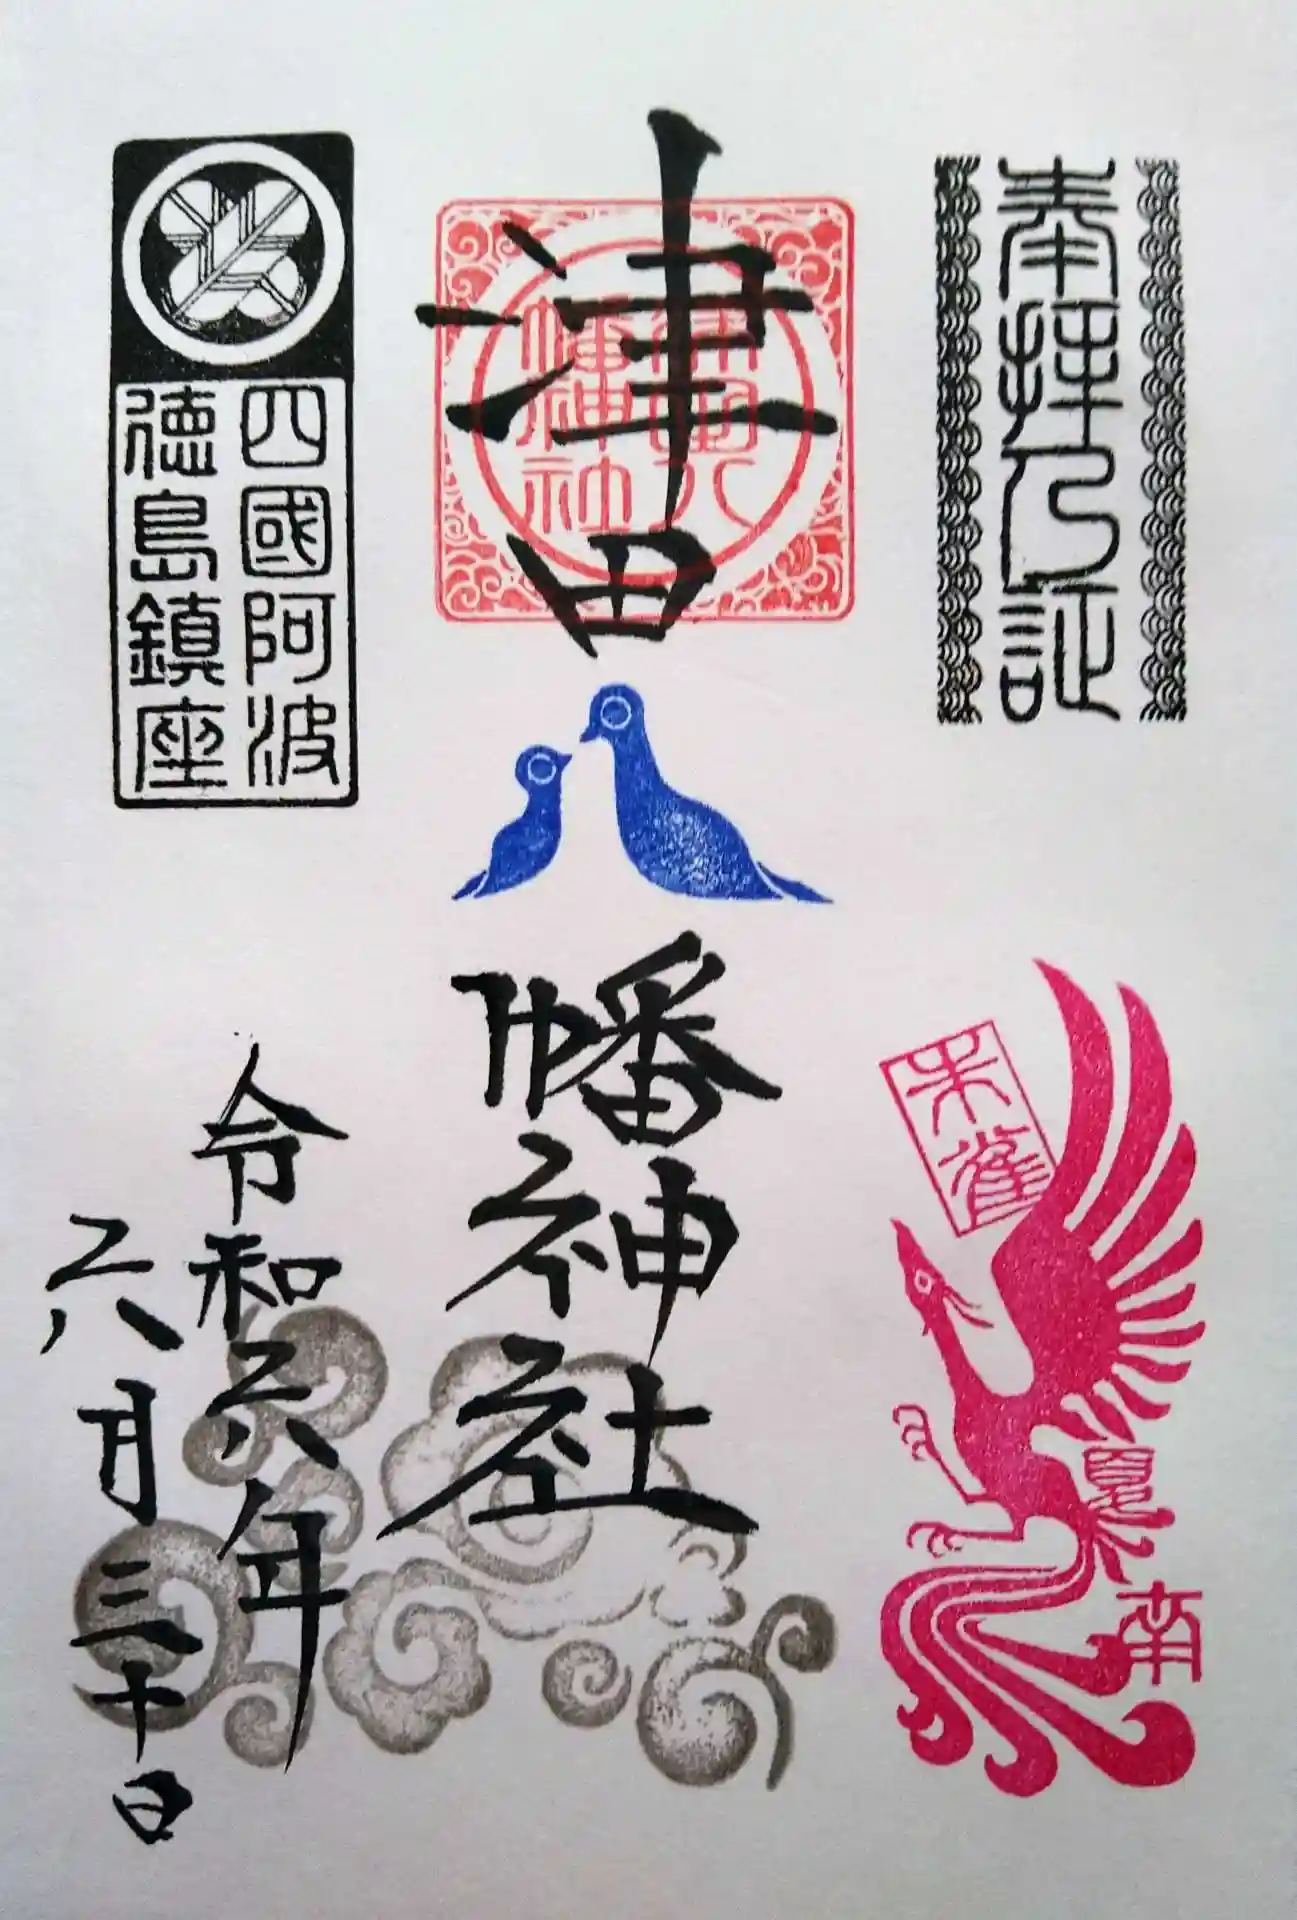 奉拝之証
朱雀
夏
南
津田
津田八
幡神社
幡神社
四國阿波
徳島鎮座
令和六年
六月三十日